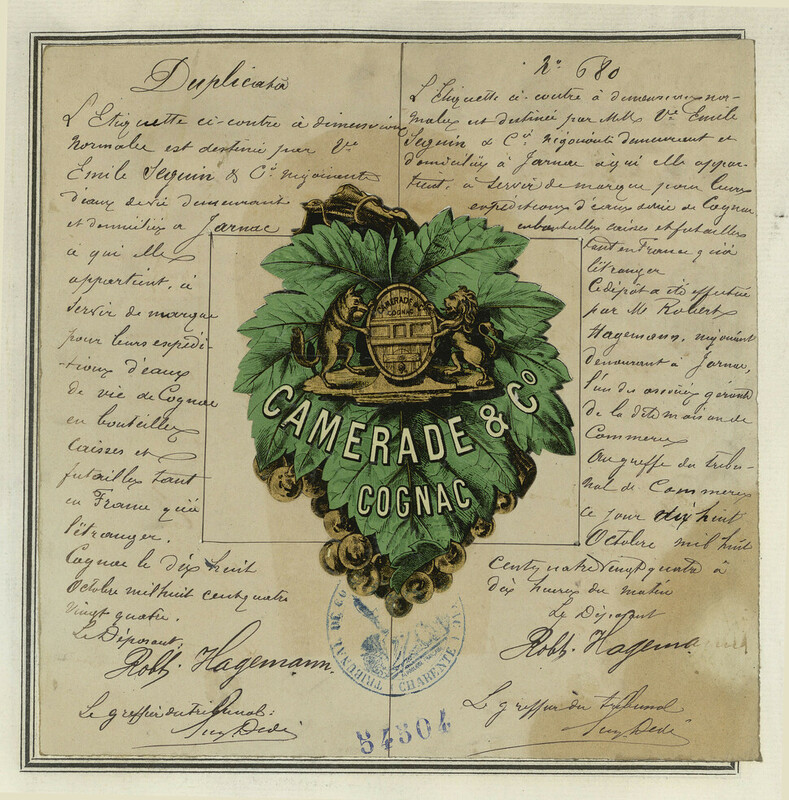 Duplicata
L'Etiquette ci-contre à dimension
normales est destinée par Vve
Emile Seguin & Cie négociants
d'eaux de vie demeurant
et domiciliés à Jarnac
à qui elle
appartient, à
servir de marque
pour leurs expédi-
-tions d'eaux
de vie de Cognac
en bouteilles
caisses et
futailles tant
en France qu'à
l'étranger.
Cognac le dix huit
Octobre mil huit cent quatre
vingt quatre.
Le Déposant,
Robt. Hagemann.
Le greffier du tribunal:
No 680
L'Etiquette ci-contre à dimensions nor-
males est destinée par MM. Vve Emile
Seguin & Cie négociants demeurant et
domiciliés à Jarnac à qui elle appar-
tient, à servir de marque pour leurs
expéditions d'eaux de vie de Cognac
en bouteilles caisses et futailles
tant en France qu'à
l'étranger
Le dépôt a été effectué
par Mr Robert
Hagemann, négociant
demeurant à Jarnac,
l'un des associés gérants
de la dite maison de
Commerce
Au greffe du tribu-
nal de Commerce
ce jour dix huit
Octobre mil huit
cent quatre vingt quatre à
dix heures du matin
Le Déposant
Robt. Hagema
Le greffier du tribunal
CAMERADE & Co
COGNAC
CAMERADE & Co
COGNAC
TRIBUNAL DE CO
CHARENTE
54504